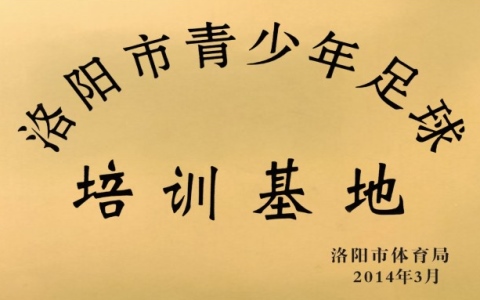 洛阳市青少年足球
培训基地
洛阳市体育局
2014年3月